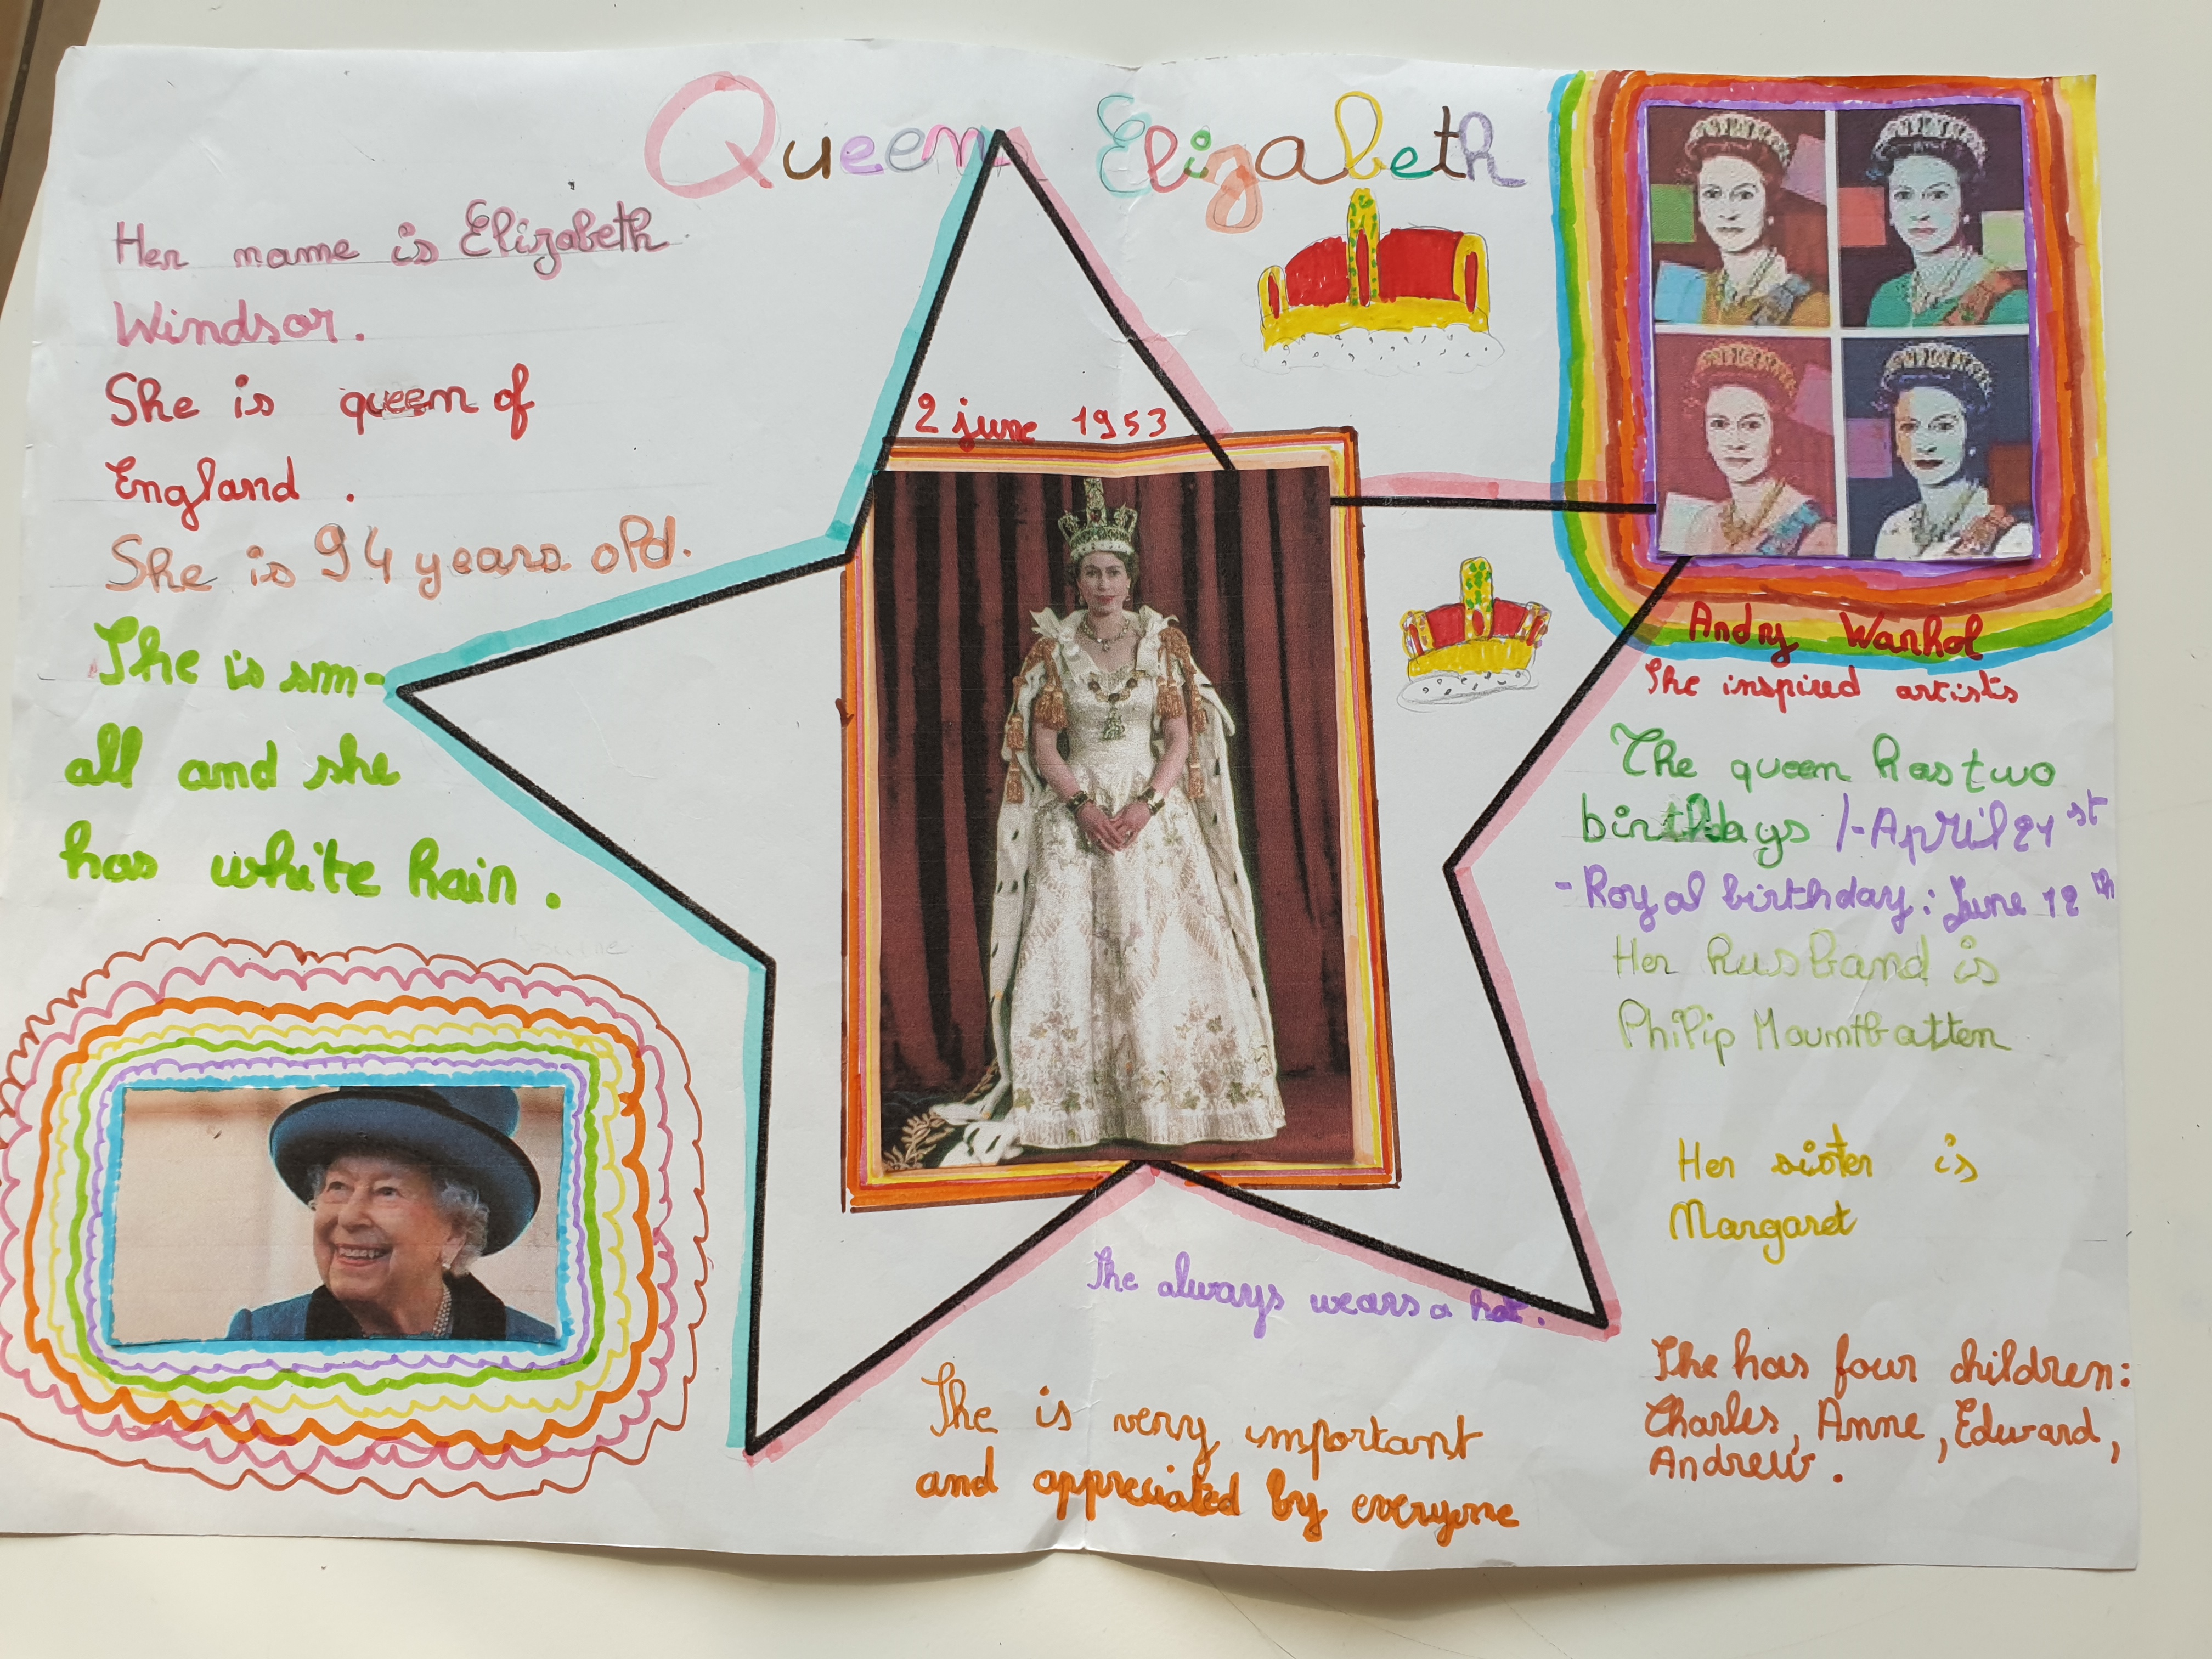 Queen Elizabeth
Her name is Elizabeth
Windsor.
She is queen of
England.
She is 94 years old.
She is sm-
all and she
has white hair.
2 june 1953
Andy Warhol
She inspired artists
The queen has two
birthdays /-April 21st
-Royal birthday: June 12th
Her husband is
Philip Mountbatten
Her sister is
Margaret
She has four children:
Charles, Anne, Edward,
Andrew.
She always wears a hat.
She is very important
and appreciated by everyone